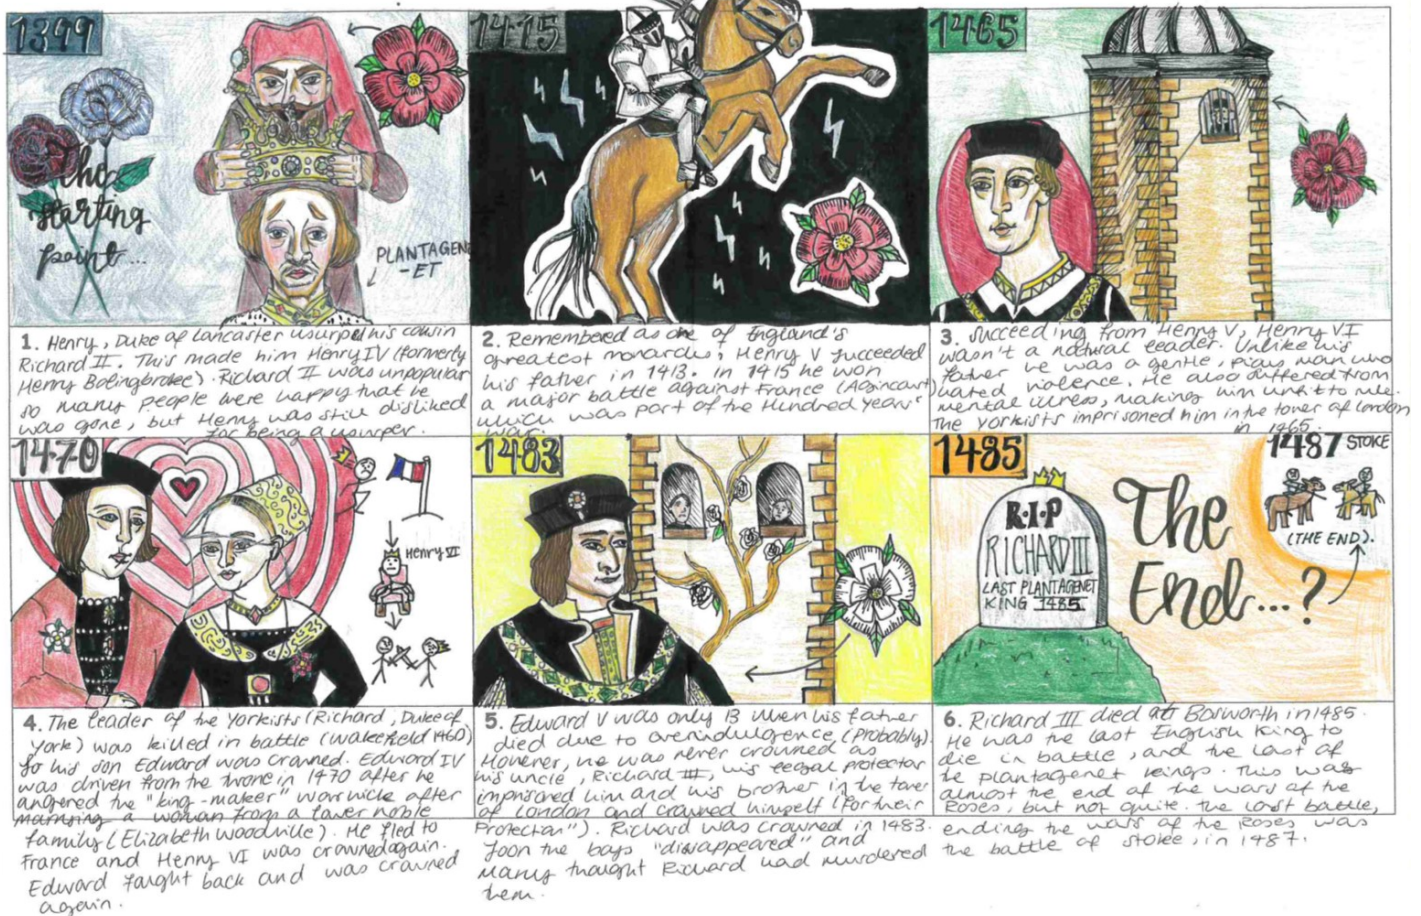 1399
The
starting
point...
PLANTAGEN
-ET
1415
1465
1. Henry, Duke of Lancaster usurped his cousin
Richard II. This made him Henry IV (formerly
Henry Bolingbroke). Richard II was unpopular
so many people were happy that he
was gone, but Henry was still disliked
for being a usurper.
2. Remembered as one of England's
greatest monarchs, Henry V succeeded
his father in 1413. In 1415 he won
a major battle against France (Agincourt)
which was part of the Hundred Years'
war.
3. Succeeding from Henry V, Henry VI
wasn't a natural leader. Unlike his
father he was a gentle, pious man who
hated violence. He also suffered from
mental illness, making him unfit to rule.
The Yorkists imprisoned him in the tower of London
in 1465.
1470
Henry VI
1483
1485
R.I.P
RICHARD III
LAST PLANTAGENET
KING 1485
The
End...?
1487 STOKE
(THE END).
4. The leader of the Yorkists (Richard, Duke of
York) was killed in battle (Wakefield 1460)
so his son Edward was crowned. Edward IV
was driven from the throne in 1470 after he
angered the "king-maker" Warwick after
marrying a woman from a lower noble
family (Elizabeth Woodville). He fled to
France and Henry VI was crowned again.
Edward fought back and was crowned
again.
5. Edward V was only 13 when his father
died due to overindulgence (probably).
However, he was never crowned as
his uncle, Richard III, his legal protector
imprisoned him and his brother in the tower
of London and crowned himself (for their
Protection"). Richard was crowned in 1483.
Soon the boys "disappeared" and
many thought Richard had murdered
them.
6. Richard III died at Bosworth in 1485.
He was the last English King to
die in battle, and the last of
the plantagenet kings. This was
almost the end of the wars of the
Roses, but not quite. The last battle,
ending the wars of the Roses was
the battle of Stoke, in 1487.